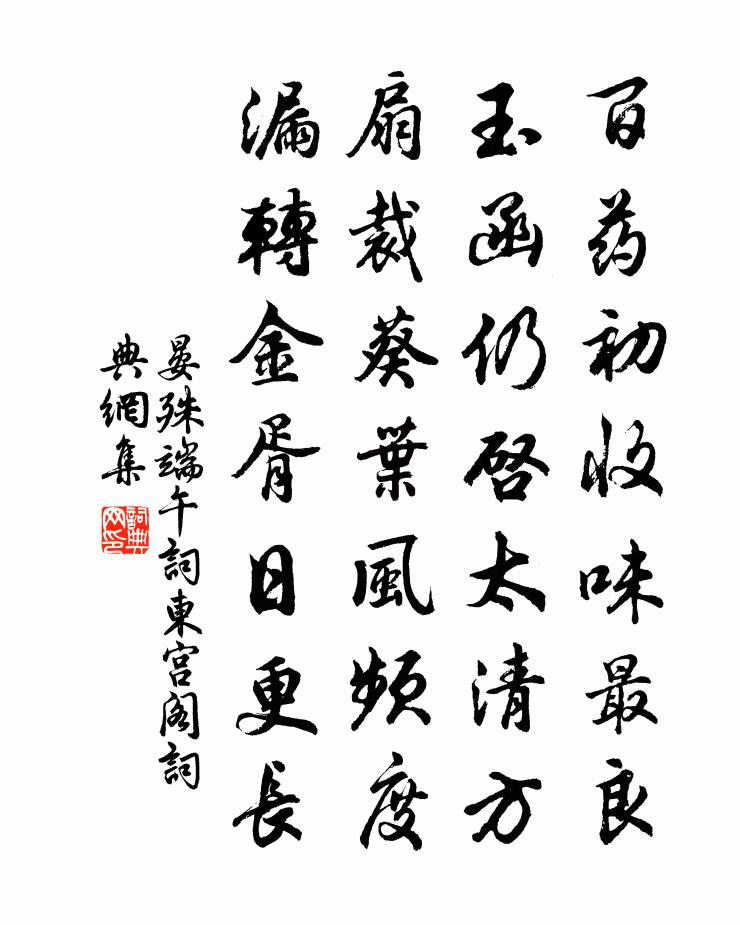 百药初收味最良
玉函仍啓太清方
扇裁葵葉風頻度
漏轉金胥日更長
晏殊端午詞東宮閣詞
典網集
詞典
网印